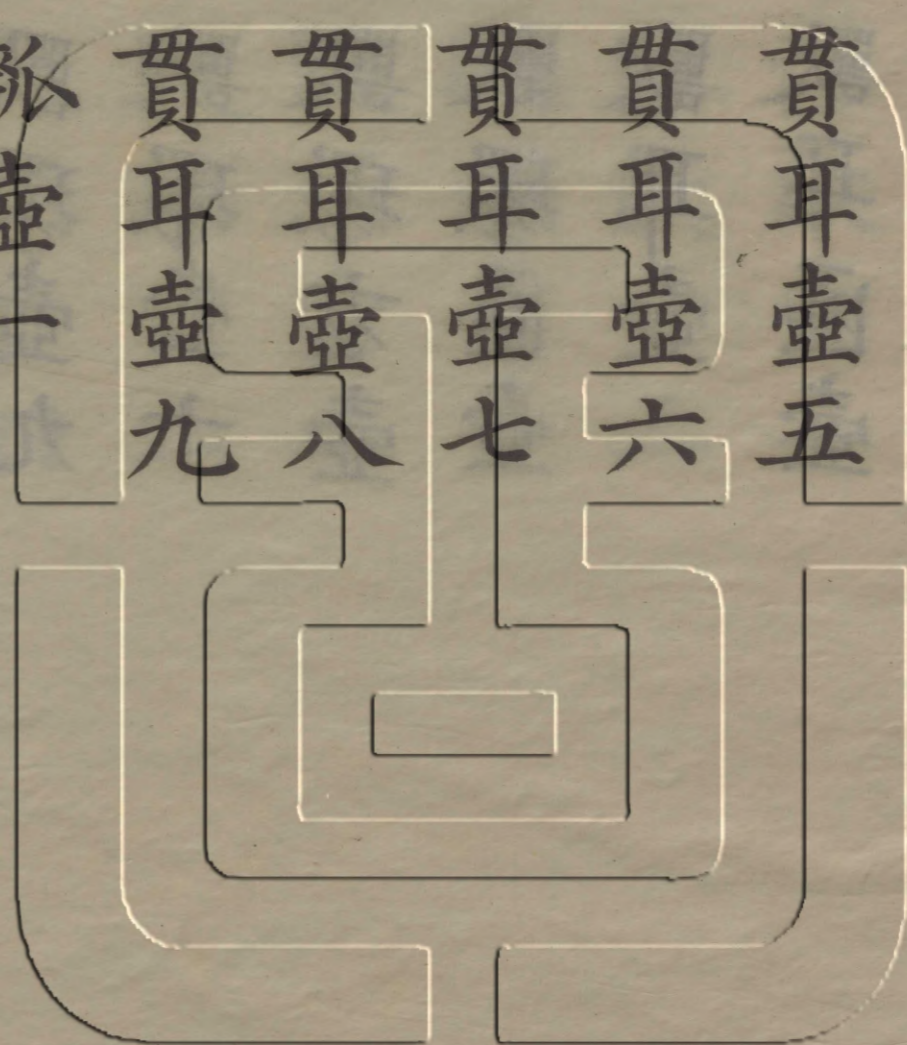 貫耳壺五
貫耳壺六
貫耳壺七
貫耳壺八
貫耳壺九
壺一